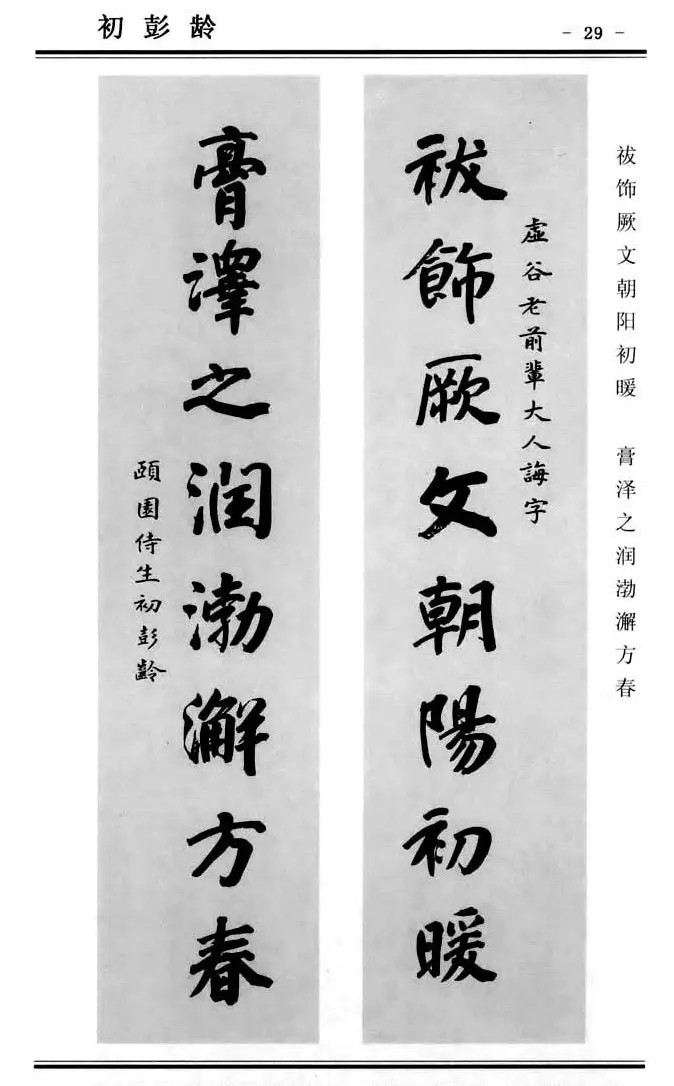 初彭龄
- 29 -
祓饰厥文朝阳初暖 膏泽之润渤澥方春
虛谷老前輩大人誨字
祓飾厥文朝陽初暖
膏澤之润渤澥方春
頤園侍生初彭齡